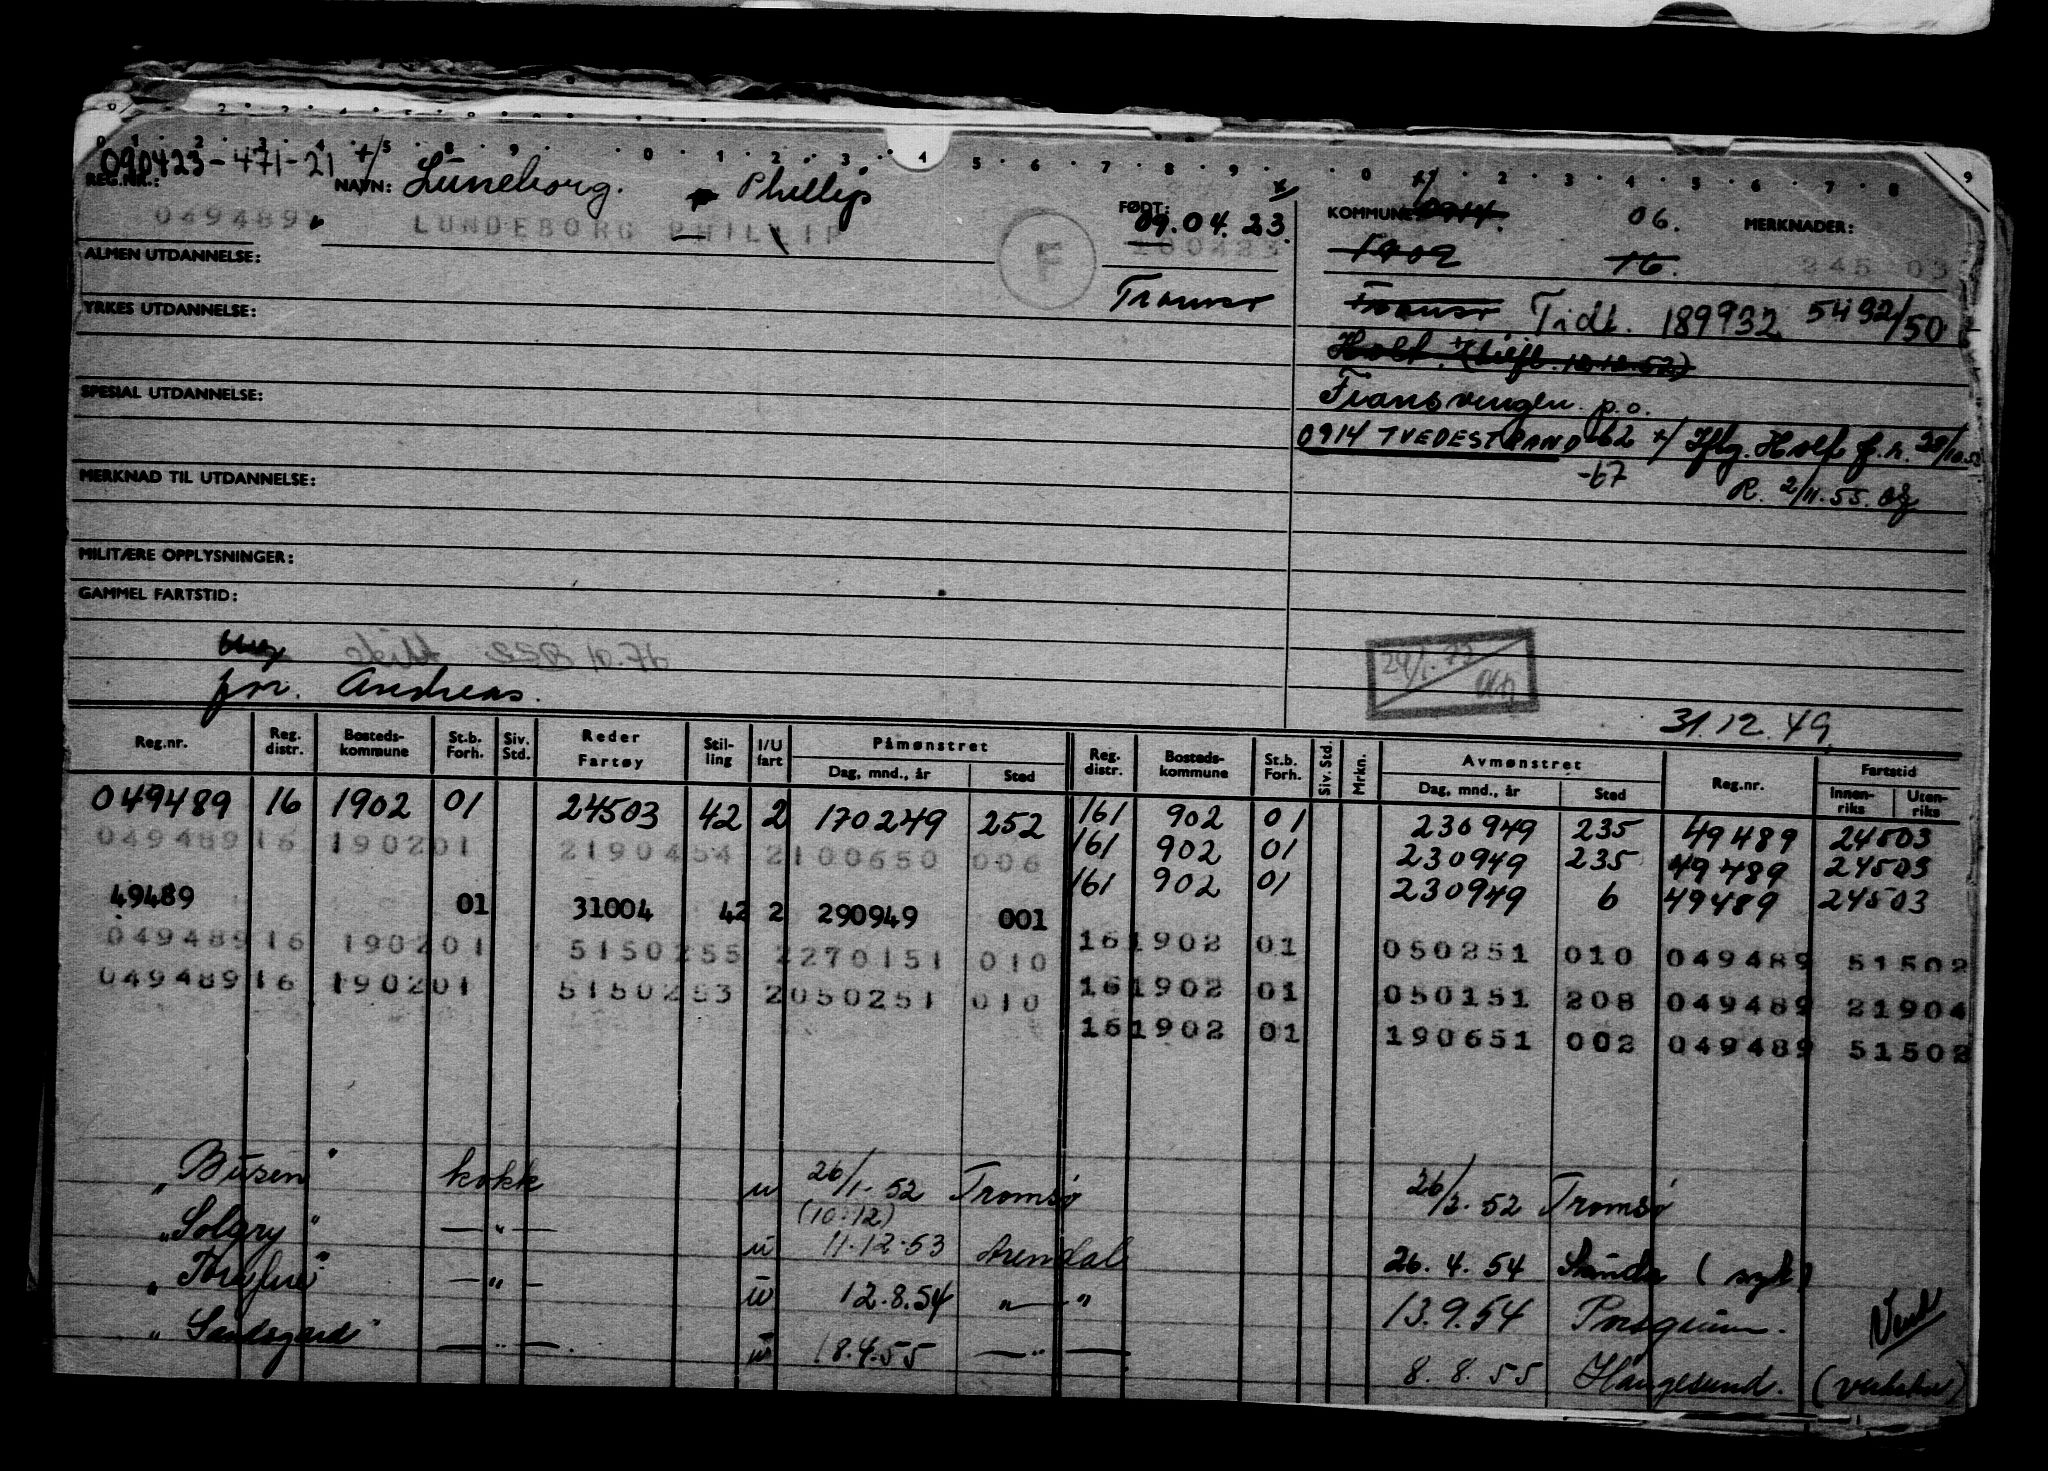 090423-471-21 +/
REG.NR.: NAVN: Luneborg. Phillip FØDT: 09.04.23. KOMMUNE 0914. 06. MERKNADER:
049489 LUNDEBORG PHILLIP F 200423 1902 16. 245 03
ALMEN UTDANNELSE: Tromsø Tromsø Tidl. 189932 5492/50
YRKES UTDANNELSE: Holt.
Fiansvingen p.o.
SPESIAL UTDANNELSE: 0914 TVEDESTRAND -62 +/ Iflg. Holt f.r. 20/10.53
-67 R. 2/11.55.
MERKNAD TIL UTDANNELSE:
MILITÆRE OPPLYSNINGER:
GAMMEL FARTSTID:
10.76
24/1.77
far. Andreas.
31.12.49.
Reg.nr. Reg. distr. Bosteds-kommune St.b. Forh. Siv. Std. Reder Fartøy Stil-ling I/U fart Påmønstret Dag, mnd., år Sted Reg. distr. Bosteds-kommune St.b. Forh. Siv. Std. Mrkn. Avmønstret Dag, mnd., år Sted Reg.nr. Fartstid Innen-riks Uten-riks
049489 16 1902 01 24503 42 2 170249 252 161 902 01 230949 235 49489 24503
049489 16 1902 01 21904 54 2 100650 006 161 902 01 230949 235 49489 24503
49489 01 31004 42 2 290949 001 161 902 01 230949 6 49489 24503
049489 16 1902 01 51502 55 2 270151 010 16 1902 01 050251 010 049489 51502
049489 16 1902 01 51502 53 2 050251 010 16 1902 01 050151 208 049489 21904
16 1902 01 190651 002 049489 51502
"Busen" kokk u 26/1.52 Tromsø 26/3.52 Tromsø
(10.12)
"Solgry" — " — u 11.12.53 Arendal 26.4.54 (syk)
— " — u 12.8.54 — " 13.9.54 Porsgrunn.
"Sandsgard" — " — u 18.4.55 — " — 8.8.55 Haugesund.